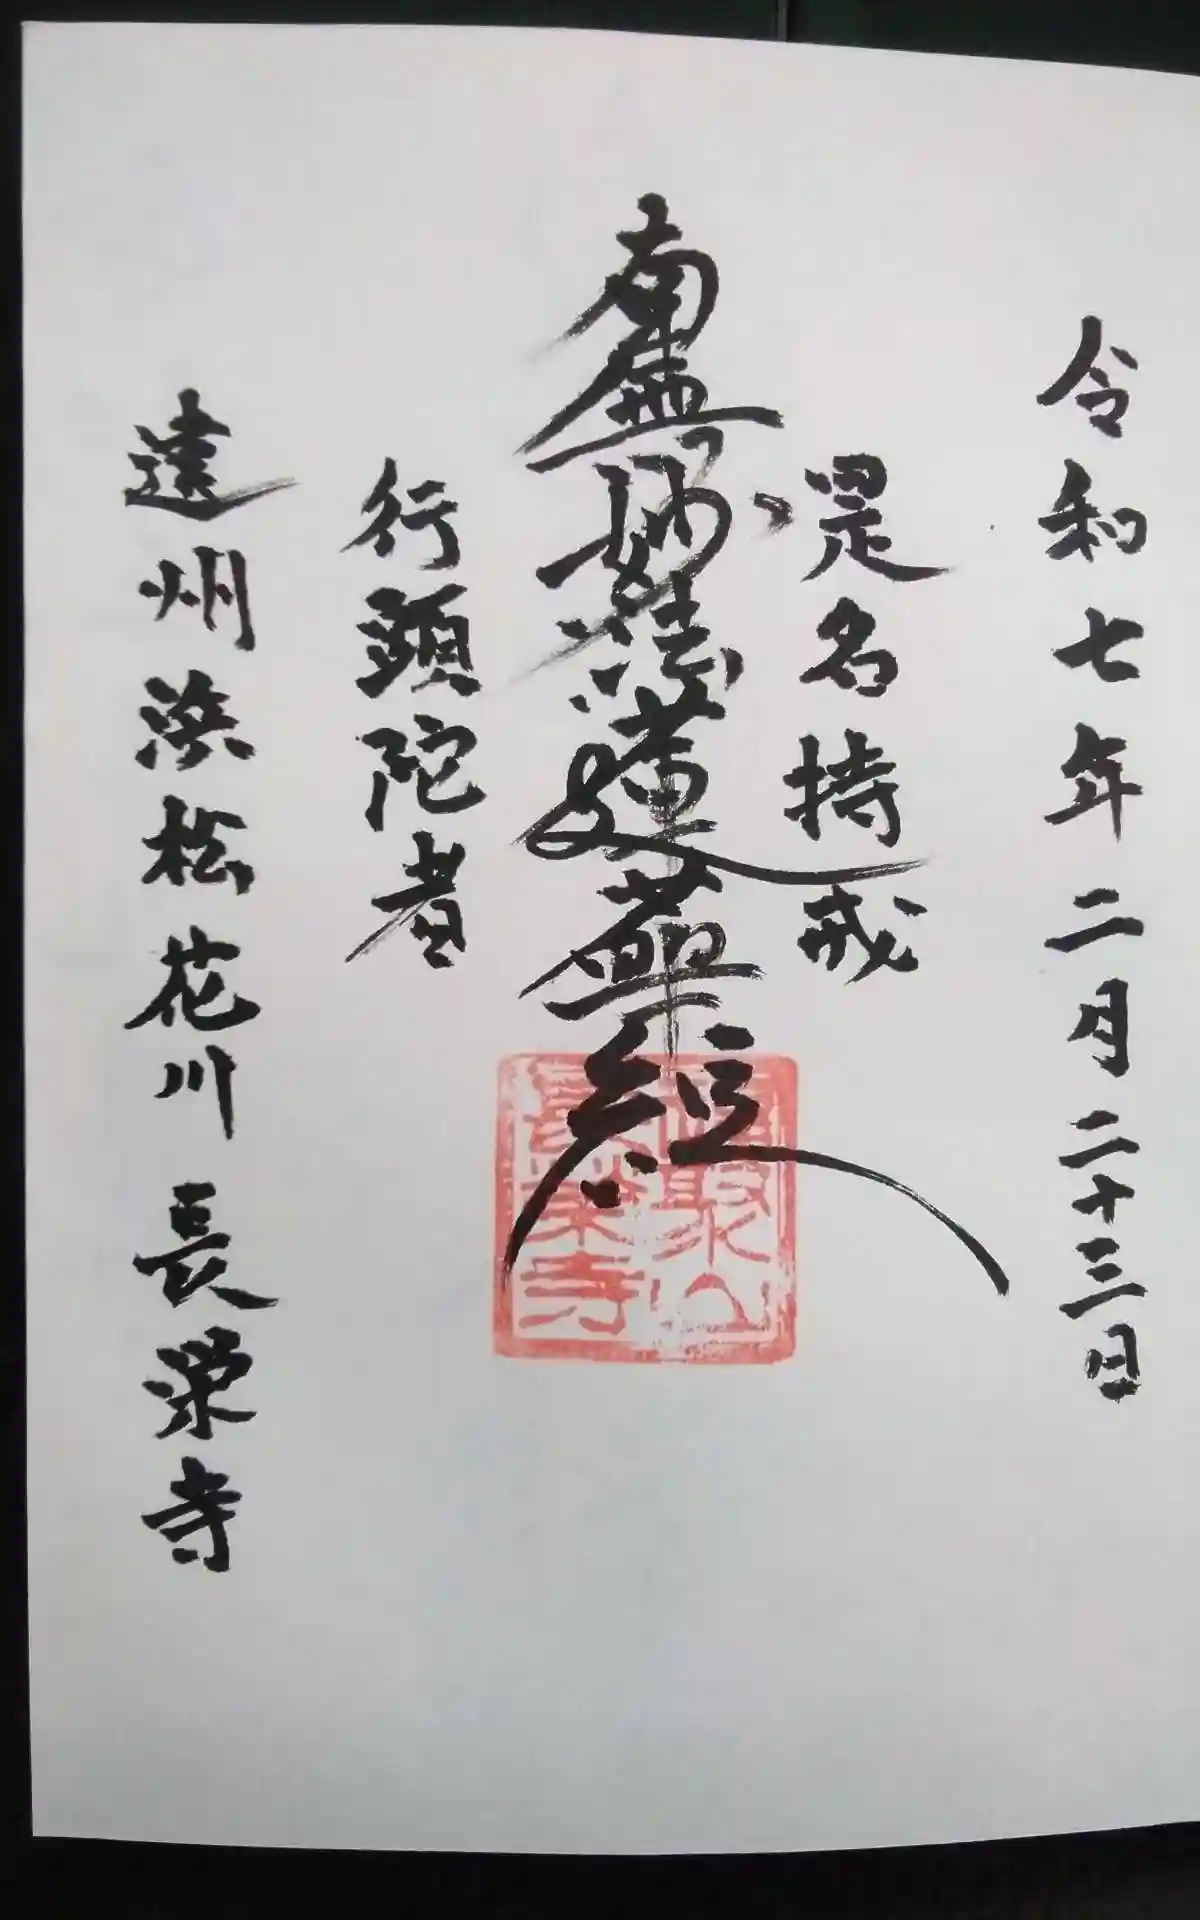 令和七年二月二十三日
是名持戒
南無妙法蓮華経
行頭陀者
遠州浜松花川 長栄寺
聚山
長栄寺